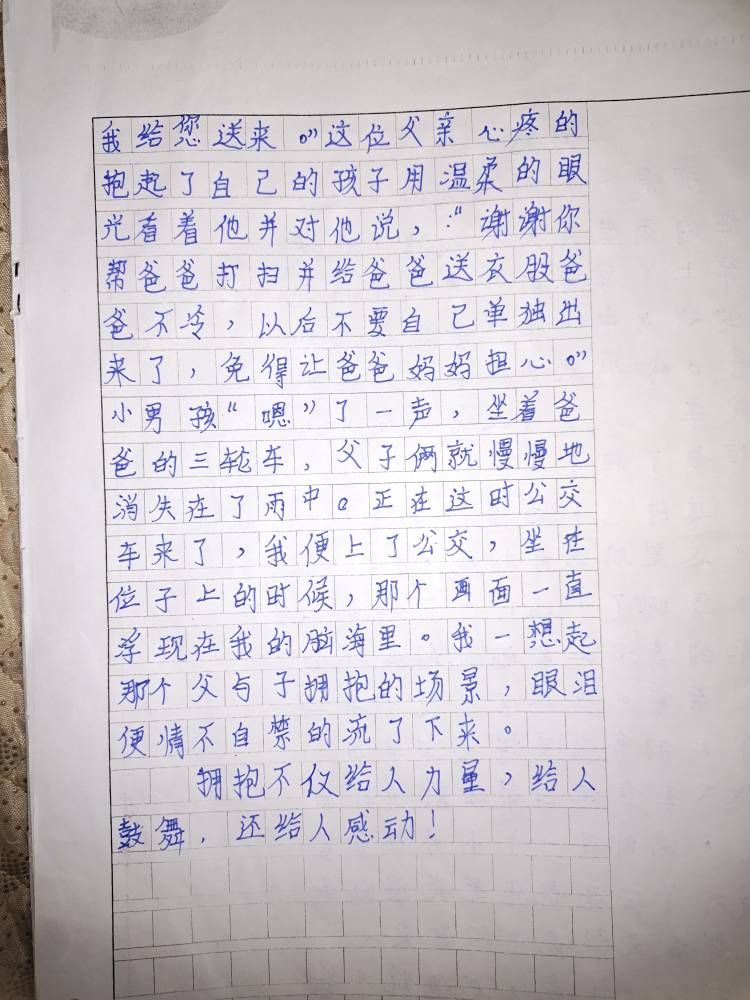 我给您送来。”这位父亲心疼的
抱起了自己的孩子用温柔的眼
光看着他并对他说，：“谢谢你
帮爸爸打扫并给爸爸送衣服爸
爸不冷，以后不要自己单独出
来了，免得让爸爸妈妈担心。”
小男孩“嗯”了一声，坐着爸
爸的三轮车，父子俩就慢慢地
消失在了雨中。正在这时公交
车来了，我便上了公交，坐在
位子上的时候，那个画面一直
浮现在我的脑海里。我一想起
那个父与子拥抱的场景，眼泪
便情不自禁的流了下来。
拥抱不仅给人力量，给人
鼓舞，还给人感动！